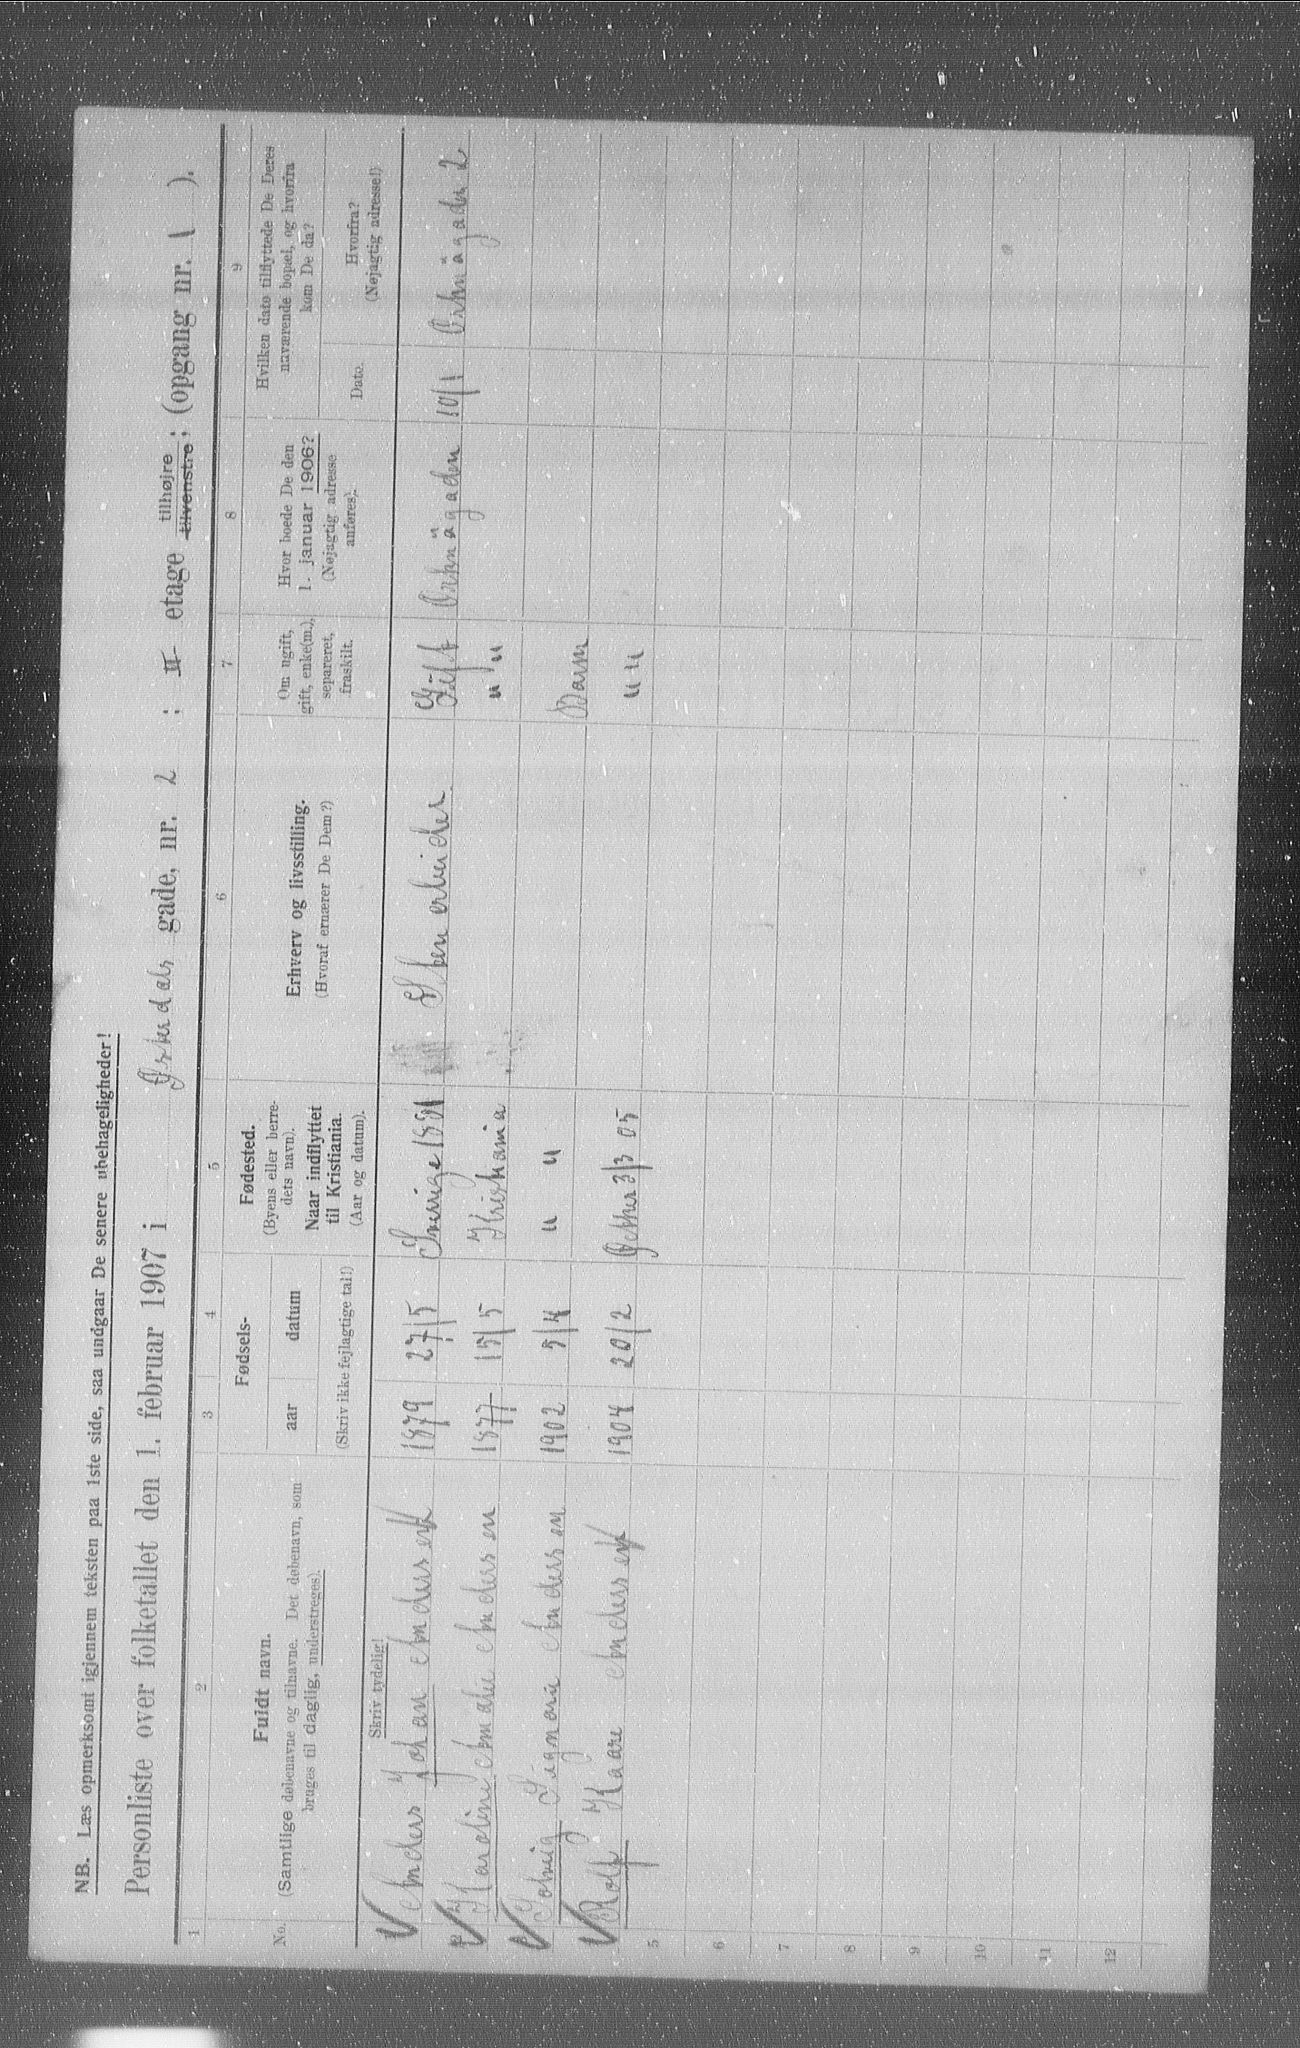 NB. Læs opmerksomt igjennem teksten paa 1ste side, saa undgaar De senere ubehageligheder!
Personliste over folketallet den 1. februar 1907 i Østerdals gade, nr. 2 : II etage tilhøjre tilvenstre; (opgang nr. 1 ).
1 2 3 4 5 6 7 8 9
No.
Fuldt navn.
(Samtlige døbenavne og tilnavne. Det døbenavn, som
bruges til daglig, understreges).
Fødsels-
aar datum
(Skriv ikke fejlagtige tal!)
Fødested.
(Byens eller herre-
dets navn).
Naar indflyttet
til Kristiania.
(Aar og datum).
Erhverv og livsstilling.
(Hvoraf ernærer De Dem?)
Om ugift,
gift, enke(m.),
separeret,
fraskilt.
Hvor boede De den
1. januar 1906?
(Nøjagtig adresse
anføres).
Hvilken dato tilflyttede De Deres
nuværende bopæl, og hvorfra
kom De da?
Dato.
Hvorfra?
(Nøjagtig adresse!)
Skriv tydelig!
Anders Johan Andersen 1879 27/5 Sverrige Stenarbeider Gift 10/1
2 Karoline Amalie Andersen 1877 15/5 Kristiania " "
Solveig Signora Andersen 1902 5/4 " " Barn
Rolf Kaare Andersen 1904 20/2 3/3 05 " "
5
6
7
8
9
10
11
12